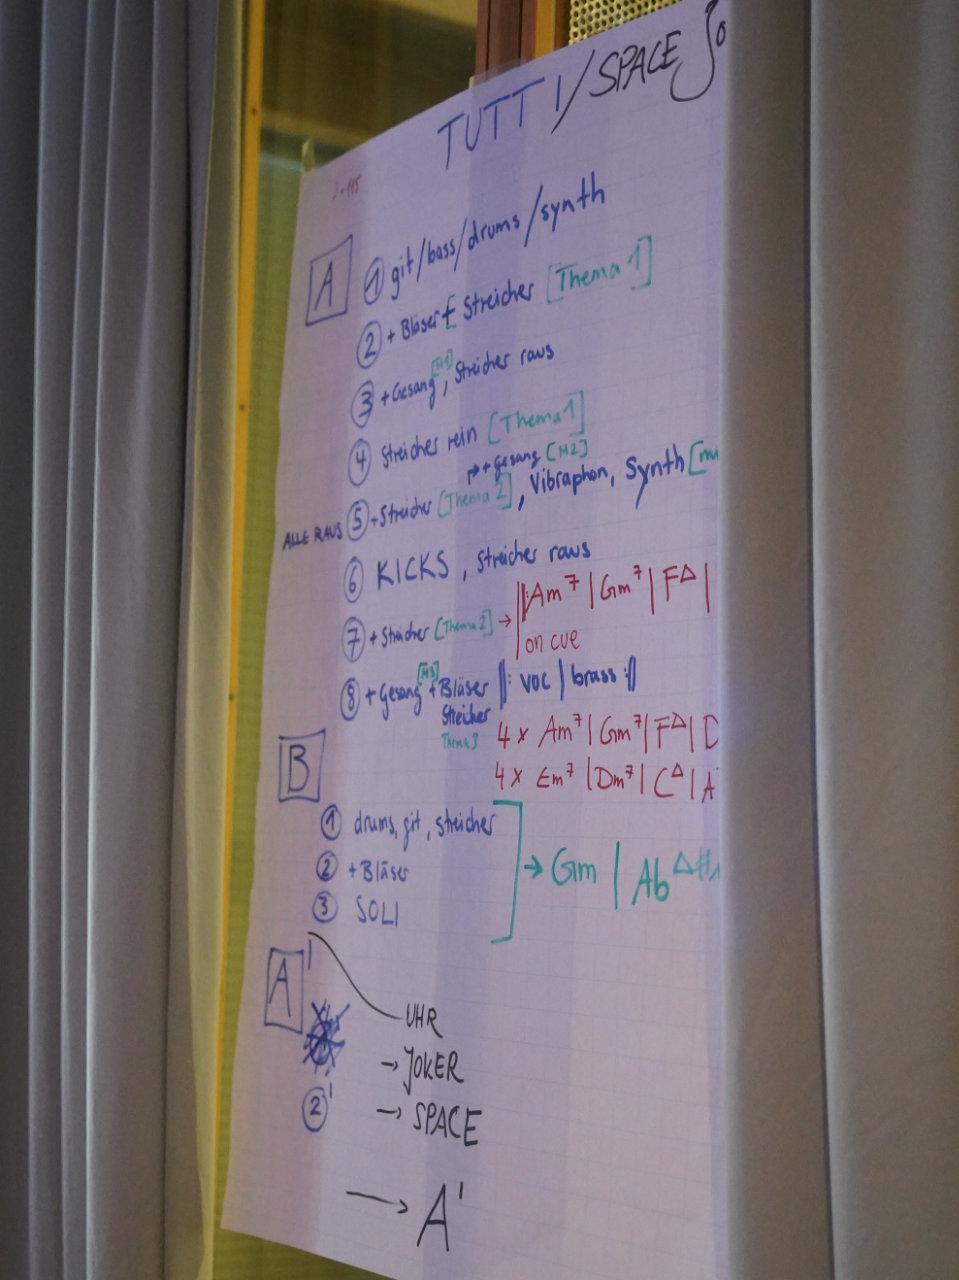 TUTTI/SPACE Jo
♩=115
A
① git/bass/drums/synth
② + Bläser + Streicher [Thema 1]
③ + Gesang [M1], Streicher raus
④ Streicher rein [Thema 1]
↱ + gesang [M2]
ALLE RAUS ⑤ + Streicher [Thema 2], Vibraphon, Synth [
⑥ KICKS, Streicher raus
⑦ + Streicher [Thema 2] → ||: Am7 | Gm7 | F△ |
on cue
⑧ + Gesang [M3] + Bläser ||: voc | brass :||
Streicher
Thema 3
4 x Am7 | Gm7 | F△ | D
4 x Em7 | Dm7 | C△ | A
B
① drums, git, streicher
② + Bläser
③ SOLI
→ Gm | Ab△#
A'
UHR
→ JOKER
②' → SPACE
→ A'